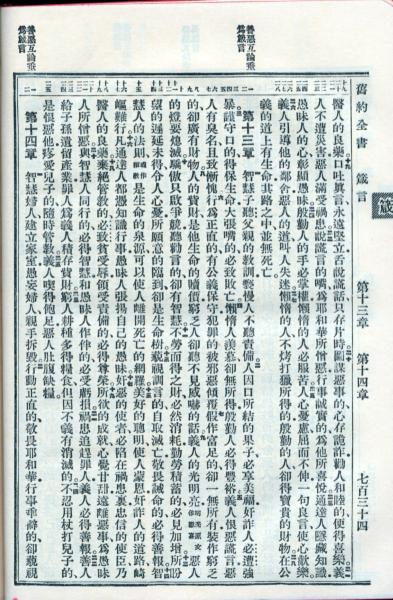 舊約全書 箴言 第十三章 第十四章 七百三十四
箴
善惡互論乘爲箴言
醫人的良藥口吐眞言永遠堅立舌說謊話只存片時圖謀惡事的心存詭詐勸人和睦的使得喜樂義
人不遭災害惡人滿受禍患說謊言的嘴爲耶和華所憎惡行事誠實的爲他所喜悅通達人隱藏知識
愚昧人的心彰顯愚昧殷勤人的手必掌權懶惰的人必服苦人心憂慮屈而不伸一句良言使心歡樂
義人引導他的鄰舍惡人的道叫人失迷懶惰的人不烤打獵所得的殷勤的人卻得寶貴的財物在公
義的道上有生命其路之中並無死亡
第十三章 智慧子聽父親的教訓褻慢人不聽責備人因口所結的果子必享美福奸詐人必遭強
暴謹守口的得保生命大張嘴的必致敗亡懶惰人羨慕卻無所得殷勤人必得豐裕義人恨惡謊言惡
人有臭名且致慚愧行爲正直的有公義保守犯罪的被邪惡傾覆假作富足的卻一無所有裝作窮乏
的卻廣有財物人的資財是他生命的贖價窮乏人卻聽不見威嚇的話義人的光明亮明亮原文作歡喜惡人
的燈要熄滅驕傲只啟爭競聽勸言的卻有智慧不勞而得之財必然消耗勤勞積蓄的必見加增所盼
望的遲延未得令人心憂所願意的臨到卻是生命樹藐視訓言的自取滅亡敬畏誡命的必得善報智
慧人的法則或作指教是生命的泉源可以使人離開死亡的網羅美好的聰明使人蒙恩奸詐人的道路崎
嶇難行凡通達人都憑知識行事愚昧人張揚自己的愚昧奸惡的使者必陷在禍患裏忠信的使臣乃
醫人的良藥棄絕管教的必致貧受辱領受責備的必得尊榮所欲的成就心覺甘甜遠離惡事爲愚昧
人所憎惡與智慧人同行的必得智慧和愚昧人作伴的必受虧損禍患追趕罪人義人必得善報善人
給子孫遺留產業罪人爲義人積存資財窮人耕種多得糧食但因不義有消滅的不忍用杖打兒子的
是恨惡他疼愛兒子的隨時管教義人喫得飽足惡人肚腹缺糧
善惡互論乘爲箴言
第十四章 智慧婦人建立家室愚妄婦人親手拆毀行動正直的敬畏耶和華行事乖僻的卻藐視